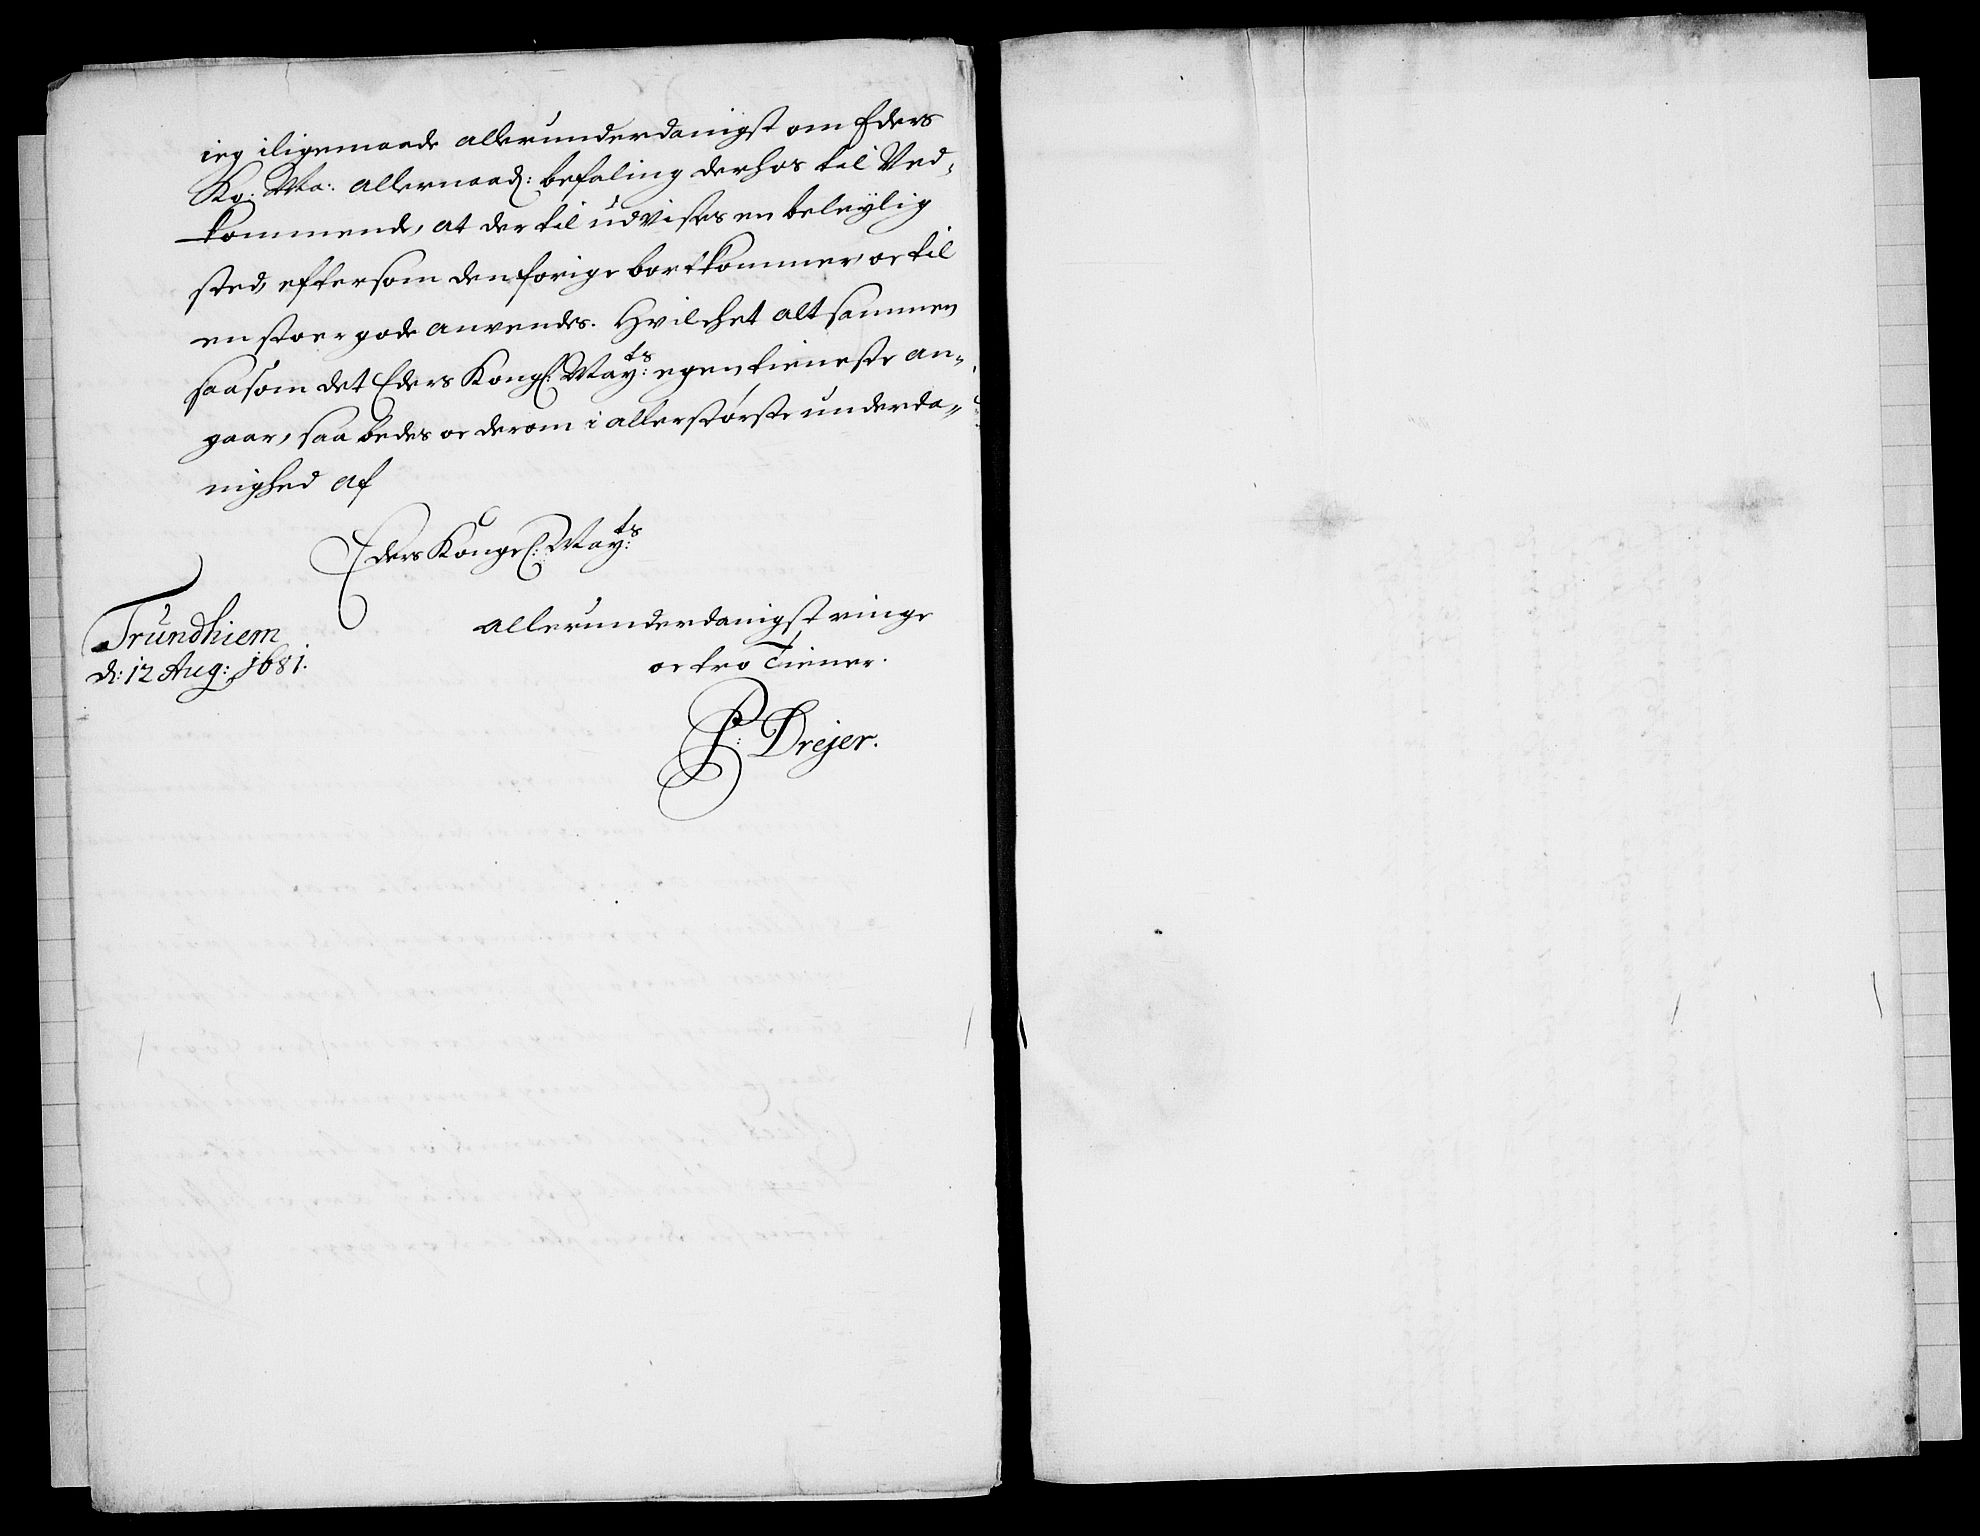 ieg iligemaade allerunderdanigst om Eders
Ko: Ma: allernaad: befaling derhos til Ved-
kommende, at der til udvises en beleylig
sted, eftersom den forige bortkommer, oc til
en stoer gode anvendes. Hvilchet alt sammen
saasom det Eders Kongl: Mayts: egen tieneste an-
gaar, saa bedes oc derom i allerstørste underda-
nighed af
Eders Kongel: Mayts:
allerunderdanigst ringe
oc tro Tiener.
Trundhiem
d: 12 Aug: 1681.
P: Drejer.